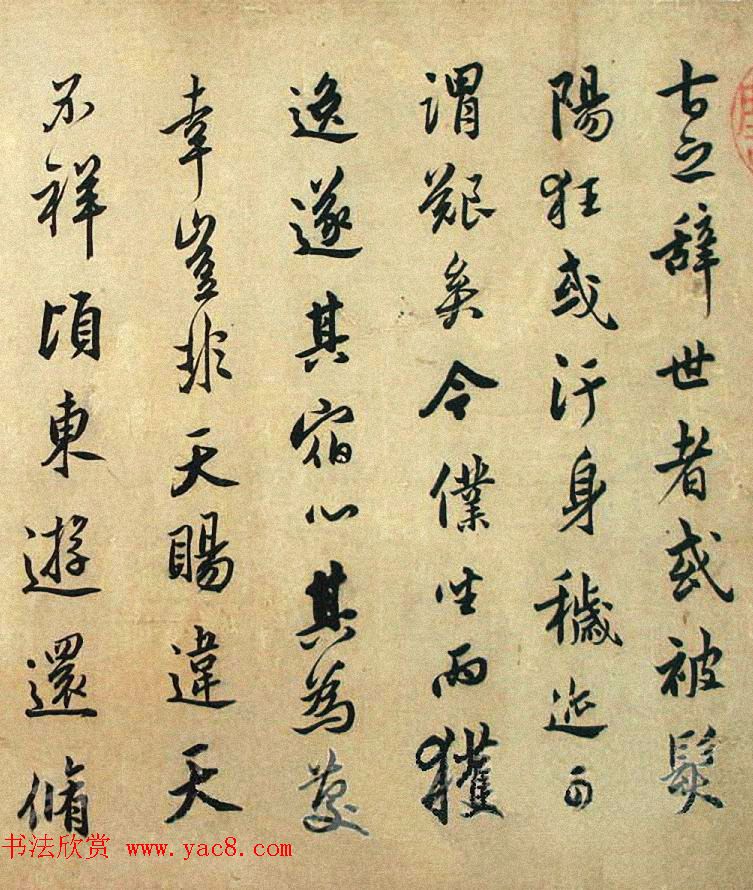 古之辞世者或被髮
陽狂或汙身穢迹可
謂艱矣今僕坐而獲
逸遂其宿心其為慶
幸豈非天賜違天
不祥頃東遊還脩
书法欣赏 www.yac8.com